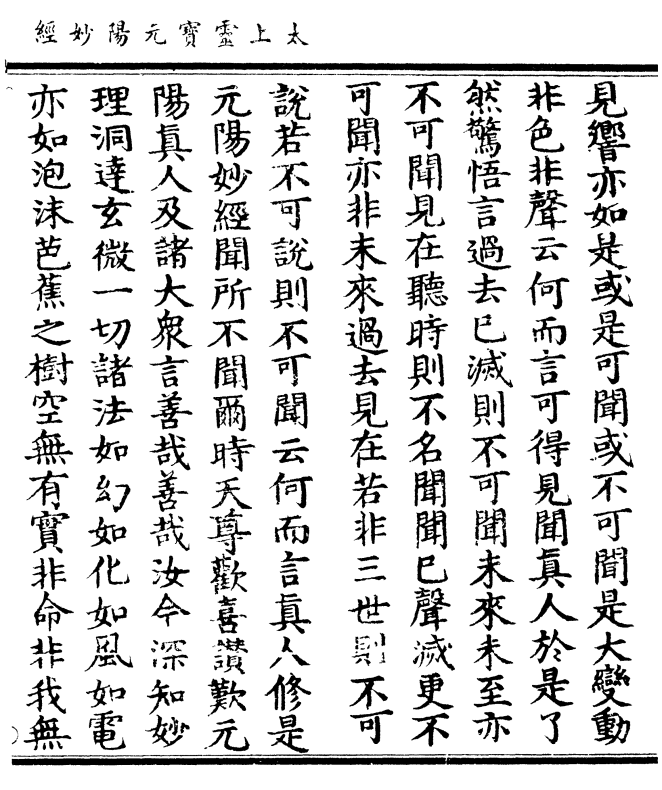 太上靈寶元陽妙經
見響亦如是或是可聞或不可聞是大變動
非色非聲云何而言可得見聞真人於是了
然驚悟言過去已滅則不可聞未來未至亦
不可聞見在聽時則不名聞聞已聲滅更不
可聞亦非未來過去見在若非三世則不可
說若不可說則不可聞云何而言真人修是
元陽妙經聞所不聞爾時天尊歡喜讚歎元
陽真人及諸大衆言善哉善哉汝今深知妙
理洞達玄微一切諸法如幻如化如風如電
亦如泡沫芭蕉之樹空無有實非命非我無